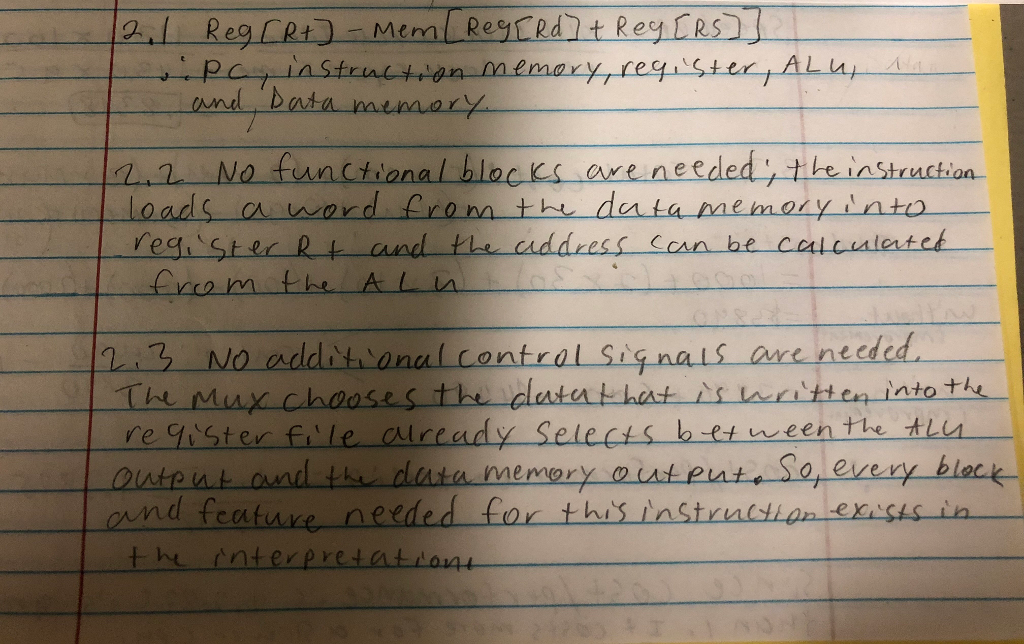 2.1 Reg[Rt] - Mem[Reg[Rd] + Reg[RS]]
∴ PC, instruction memory, register, ALU,
and, Data memory.
2.2 No functional blocks are needed; the instruction
loads a word from the data memory into
register Rt and the address can be calculated
from the ALU
2.3 No additional control signals are needed.
The Mux chooses the data that is written into the
register file already selects between the ALU
output and the data memory output. So, every block
and feature needed for this instruction exists in
the interpretation.